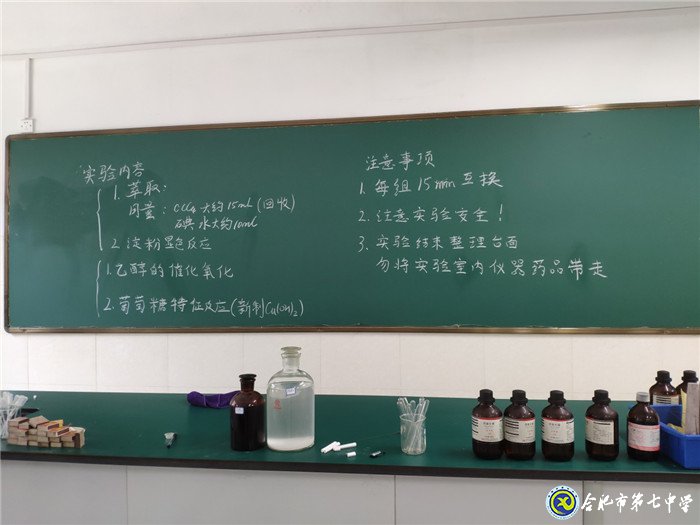 实验内容
1. 萃取:
用量: CCl₄大约15ml (回收)
碘水大约10ml
2. 淀粉显色反应
1. 乙醇的催化氧化
2. 葡萄糖特征反应(新制Cu(OH)₂)
注意事项
1. 每组15min互换
2. 注意实验安全!
3. 实验结束整理台面
勿将实验室内仪器药品带走
合肥市第七中学